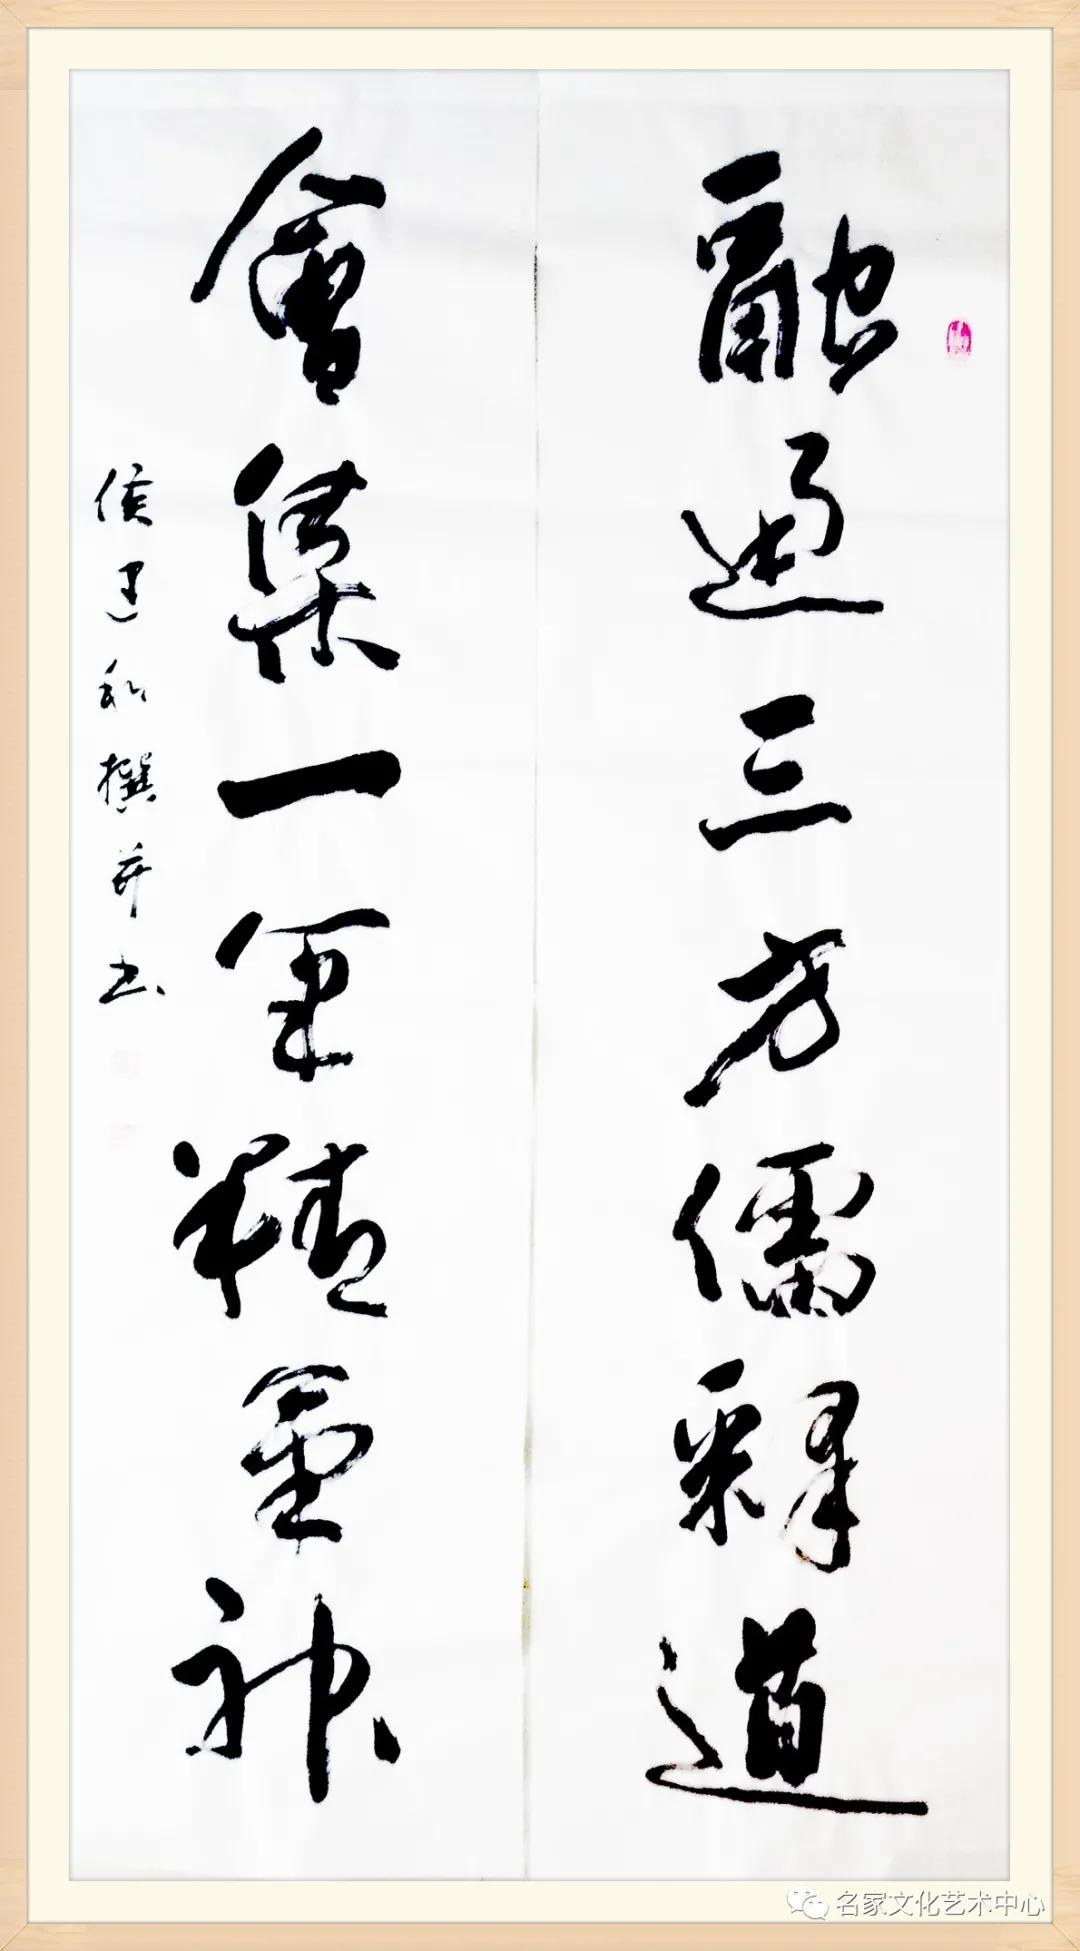 融通三方儒釋道
會集一军精氣神
侯建和撰并书
名家文化艺术中心